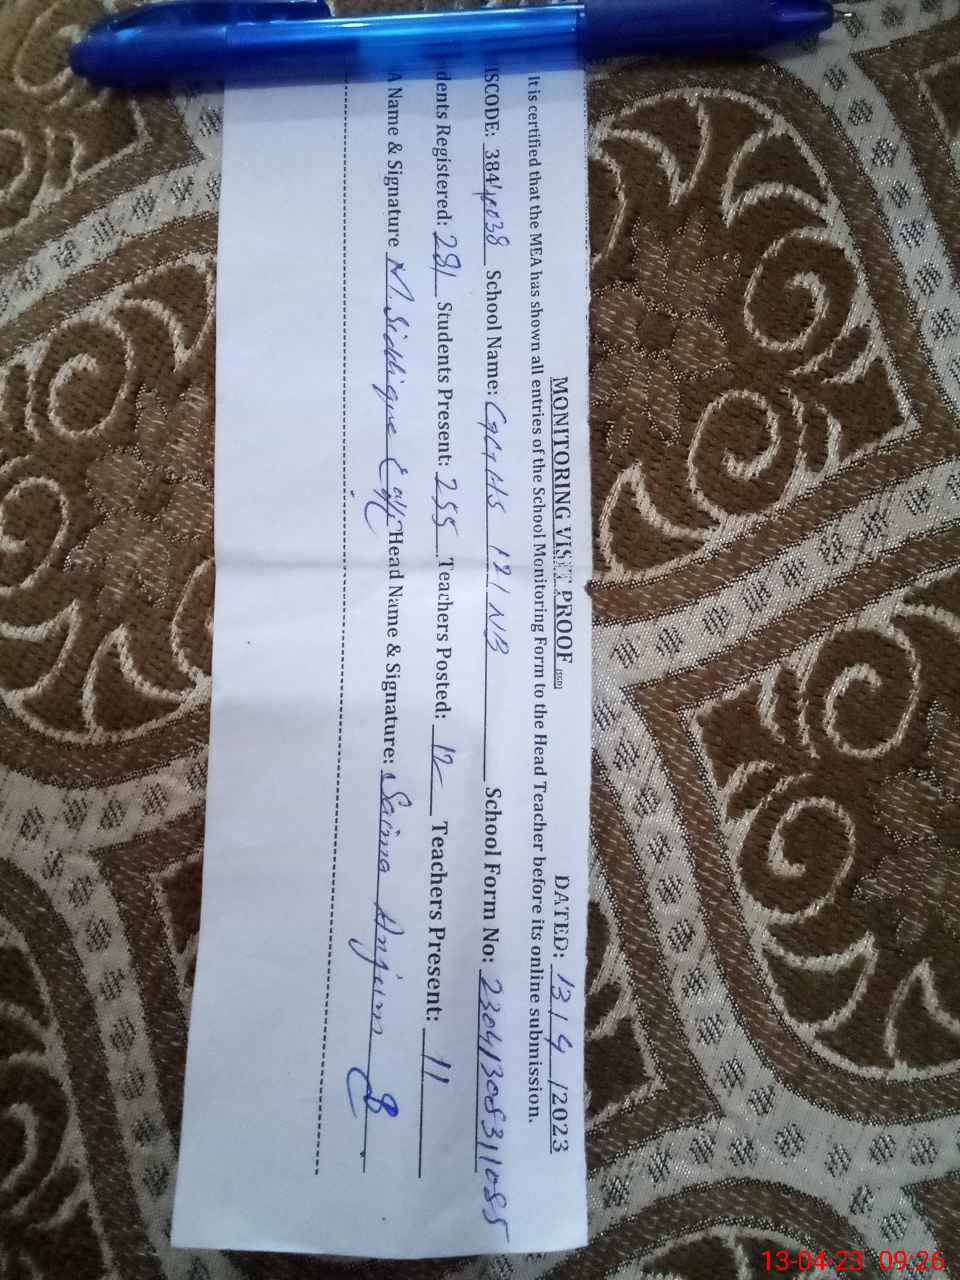 MONITORING VISIT PROOF (SED) DATED: 13/4/2023
It is certified that the MEA has shown all entries of the School Monitoring Form to the Head Teacher before its online submission.
ISCODE: 38440038 School Name: GGHS 121 NB School Form No: 23041308311085
dents Registered: 281 Students Present: 255 Teachers Posted: 12 Teachers Present: 11
A Name & Signature M. Siddique Head Name & Signature: Saima Anjum
13-04-23 09:26